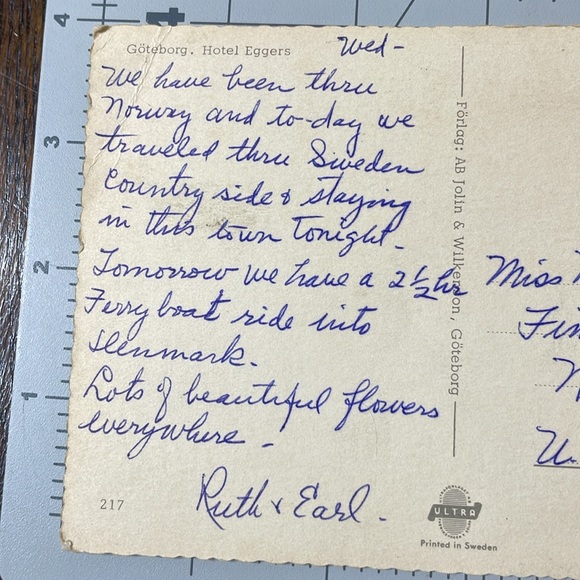 Göteborg. Hotel Eggers
Wed-
We have been thru
Norway and to-day we
traveled thru Sweden
Country side & staying
in this town Tonight-
Tomorrow we have a 2 1/2 hr
Ferry boat ride into
Denmark.
Lots of beautiful flowers
everywhere -
Ruth & Earl.
217
Förlag: AB Jolin & Wilkenson, Göteborg
Miss
ULTRA
Printed in Sweden
4
3
2
1
4